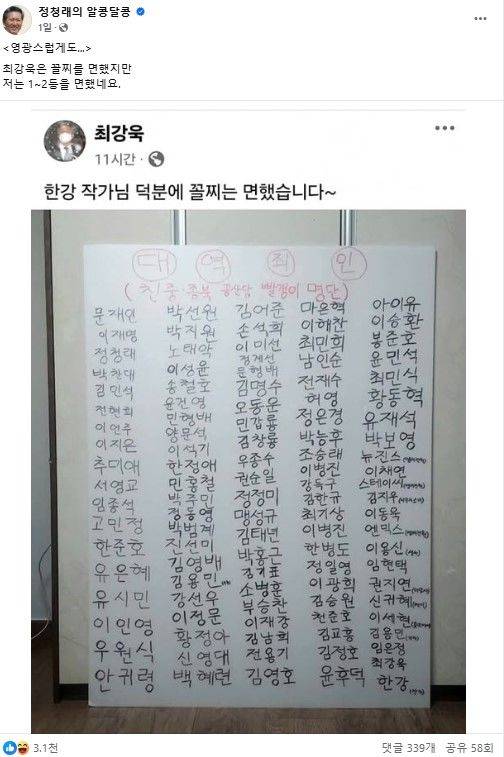 정청래의 알콩달콩
1일
<영광스럽게도...>
최강욱은 꼴찌를 면했지만
저는 1~2등을 면했네요.
최강욱
11시간
한강 작가님 덕분에 꼴찌는 면했습니다~
대 역 죄 인
(친중·종북 공산당 빨갱이 명단)
문재인
이재명
정청래
박찬대
김민석
전현희
이언주
이지은
추미애
서영교
임종석
고민정
한준호
유은혜
유시민
이인영
우원식
안귀령
박선원
박지원
노태악
이성윤
송철호
윤건영
민형배
양문석
이석기
한정애
민홍철
박주민
정동영
박범계
진선미
김영배
김용민
강선우
이정문
황정아
신영대
백혜련
김어준
손석희
이미선
정계선
문형배
김명수
오동운
민갑룡
김창룡
우종수
권순일
정정미
맹성규
김태년
박홍근
김기표
소병훈
부승찬
이재강
김남희
전용기
김영호
마은혁
이해찬
최민희
남인순
전재수
허영
정은경
박능후
조승래
이병진
강득구
김한규
최기상
이병진
한병도
정일영
이광희
김승원
천준호
김교흥
김정호
윤후덕
아이유
이승환
봉준호
윤민석
최민식
황동혁
유재석
박보영
뉴진스
이채연
스테이씨
김지우
이동욱
엔믹스
이용신
임현택
권지연
신귀혜
이세현
김용민
임은정
최강욱
한강
3.1천
댓글 339개 공유 58회